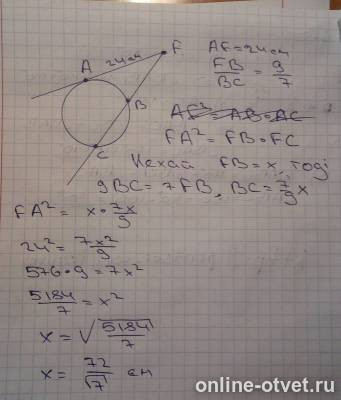 A 24 см F
B
C
AF = 24 см
FB/BC = 9/7
AF² = AB = AC
FA² = FB • FC
Нехай FB = x, тоді
9BC = 7FB, BC = 7/9 x
FA² = x • 7x/9
24² = 7x²/9
576 • 9 = 7x²
5184/7 = x²
x = √5184/7
x = 72/√7 см
online-otvet.ru